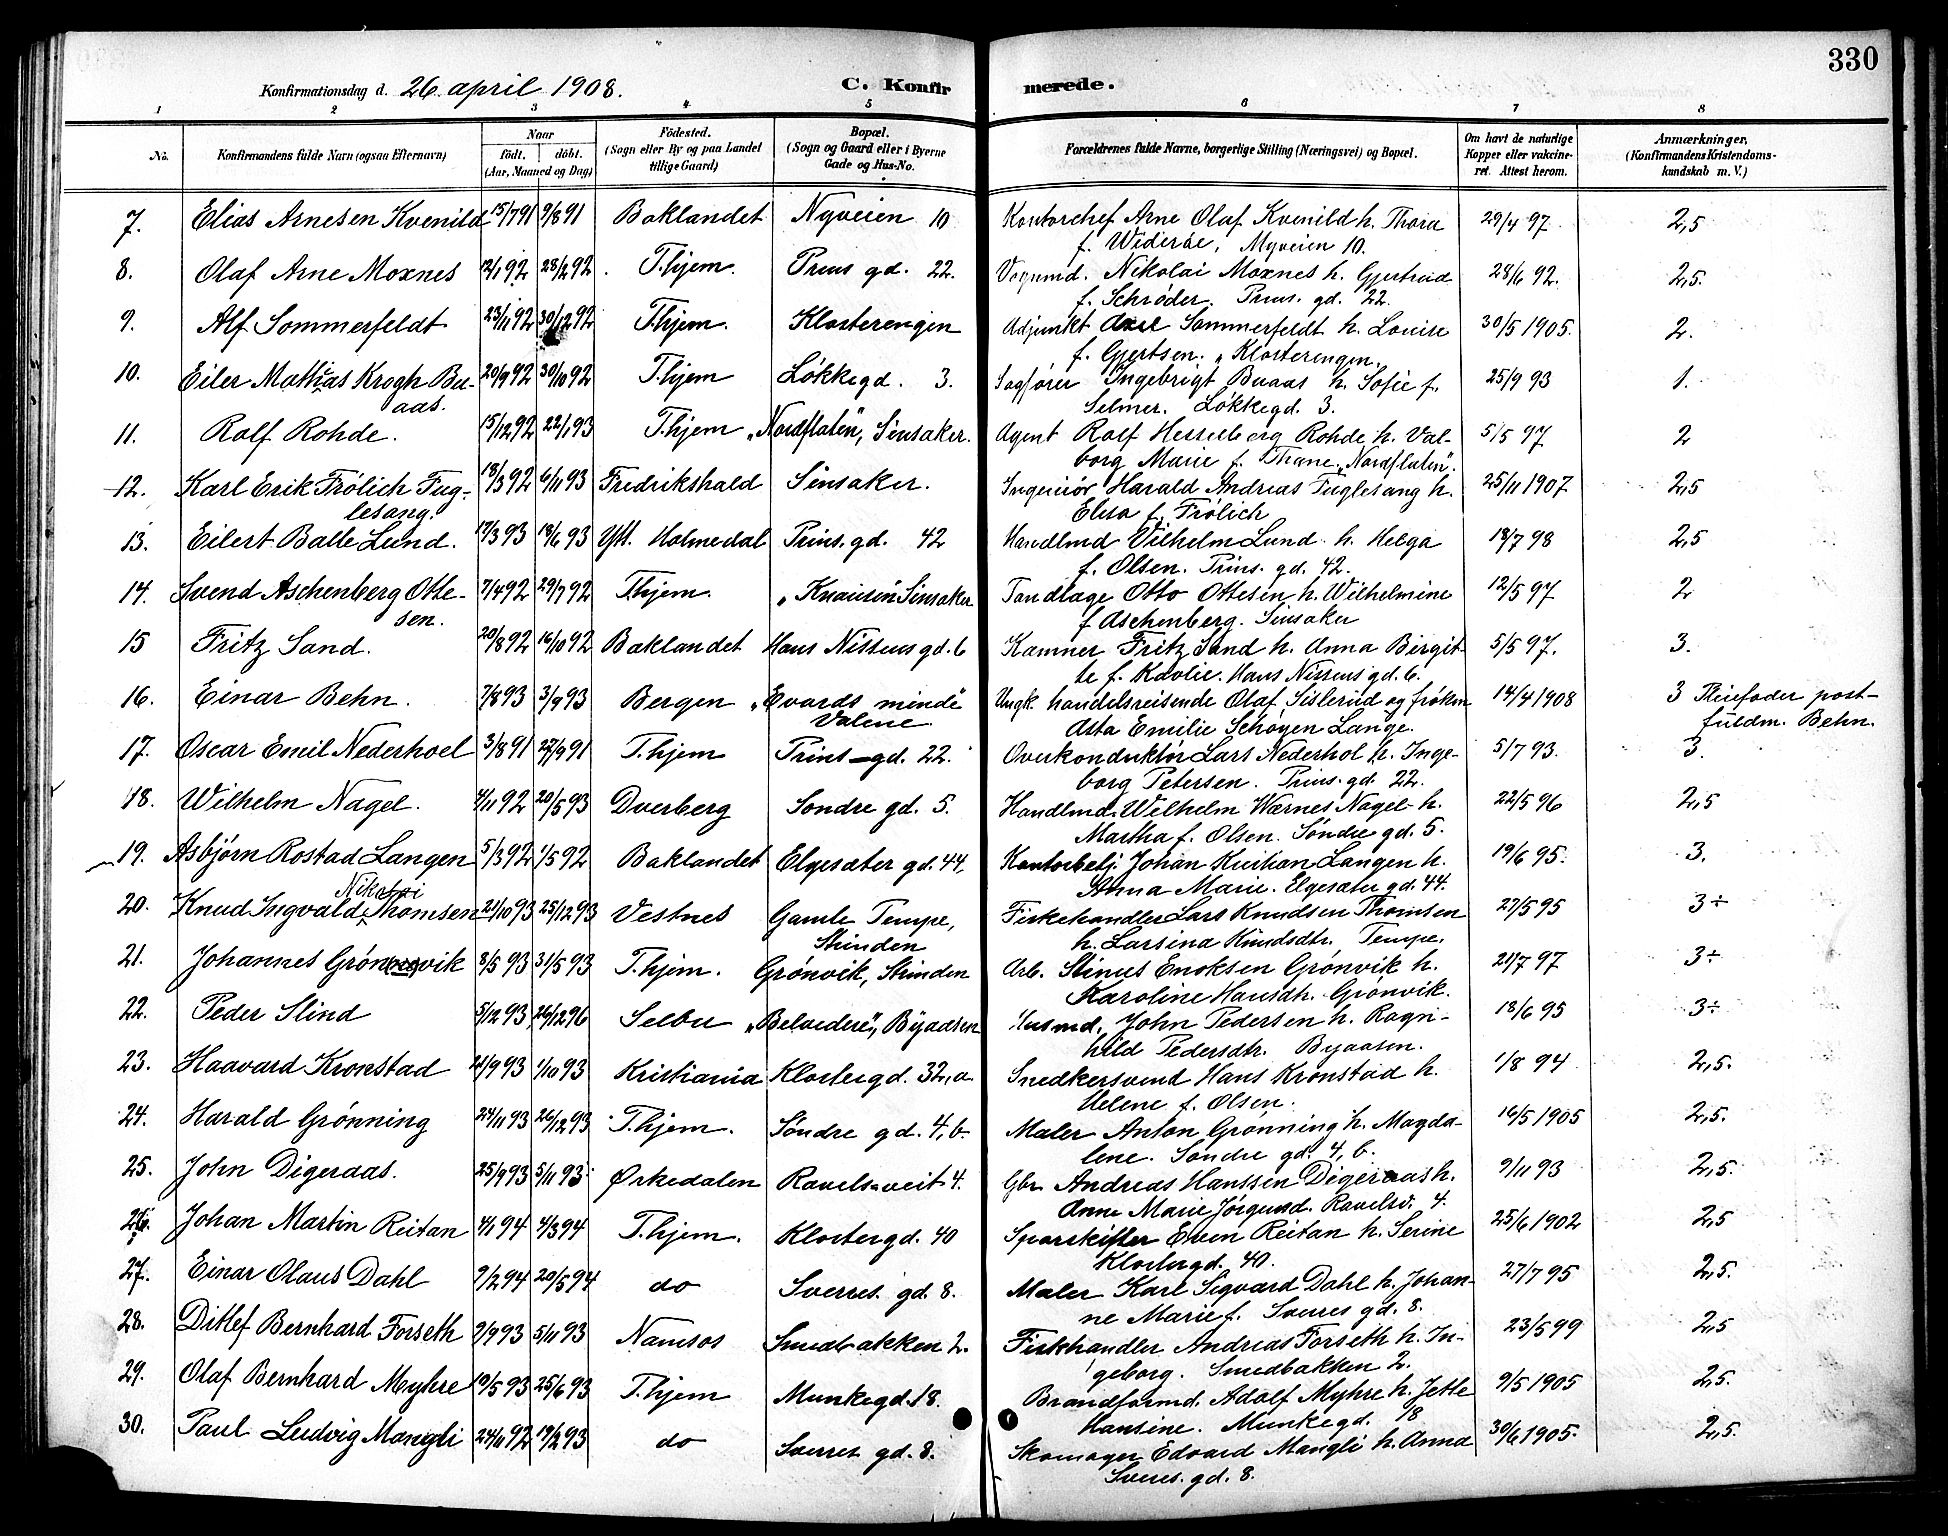 330
Konfirmationsdag d. 26. april 1908.
C. Konfirmerede.
1 2 3 4 5 6 7 8
No. Konfirmandens fulde Navn (ogsaa Efternavn) Naar født. døbt. (Aar, Maaned og Dag) Fødested. (Sogn eller By og paa Landet tillige Gaard) Bopæl. (Sogn og Gaard eller i Byerne Gade og Hus-No. Forældrenes fulde Navne, borgerlige Stilling (Næringsvei) og Bopæl. Om havt de naturlige Kopper eller vakcineret. Attest herom. Anmærkninger, (Konfirmandens Kristendomskundskab m. V.)
7. Elias Arnesen Kvenild 15/7 91 9/8 91 Baklandet Nyveien 10 Kontorchef Arne Olaf Kvenild h. Thora 29/4 97 2,5
f. Widerøe, Nyveien 10.
8. Olaf Arne Moxnes 12/1 92 28/2 92 T.hjem. Prins gd. 22. Vognmd. Nikolai Moxnes h. Gjertrud 28/6 92. 2,5.
f. Schrøder. Prins. gd. 22.
9. Alf Sommerfeldt 23/11 92 30/12 92 T.hjem. Klosterengen Adjunkt Axel Sommerfeldt h. Louise 30/5 1905. 2.
f. Gjertsen. „Klosterengen.
10. Eiler Mathias Krogh Bu- 20/9 92 30/10 92 T.hjem Løkkegd. 3. Sagfører Ingebrigt Buaas h. Sofie f. 25/9 93 1.
aas. Selmer. Løkkegd. 3.
11. Rolf Rohde. 15/12 92 22/1 93 T.hjem „Nordflaten", Sinsaker. Agent Rolf Hesselberg Rohde h. Val- 5/5 97 2
borg Marie f. Thane. „Nordflaten".
12. Karl Erik Frölich Fug- 18/3 92 6/11 93 Fredrikshald Sinsaker. Ingeniör Harald Andreas Fuglesang h. 25/11 1907 2,5
lesang. Elisa f. Frölich
13. Eilert Balle Lund. 17/3 93 18/6 93 Ytt. Holmedal Prins. gd. 42 Handlmd Vilhelm Lund h. Helga 18/7 98 2,5
f. Olsen. Prins. gd. 42.
14. Svend Aschenberg Otte- 7/4 92 29/7 92 T.hjem. „Knausen Sinsaker Tandlæge Otto Ottesen h. Wilhelmine 12/5 97 2
sen. f Aschenberg. Sinsaker
15 Fritz Sand. 20/8 92 16/10 92 Baklandet Hans Nissens gd. 6 Kæmner Fritz Sand h. Anna Birgit- 5/5 97. 3.
te f. Kavlie. Hans Nissens gd. 6.
16. Einar Behn. 7/8 93 3/9 93 Bergen „Evards minde" Ungk. handelsreisende Olaf Sislerud og frøken 14/4 1908 3 Pleiefader post-
Valene Asta Emilie Schøyen Lange. fuldm. Behn.
17. Oscar Emil Nederhoel 3/8 91 27/9 91 T.hjem Prins gd. 22. Overkonduktör Lars Nederhol h. Inge- 5/7 93. 3.
borg Petersen. Prins. gd. 22.
18. Wilhelm Nagel. 4/11 92 20/5 93 Dverberg Sondre gd. 5. Handlmd. Wilhelm Wærnes Nagel h. 22/5 96 2,5
Martha f. Olsen. Søndre gd. 5.
19. Asbjørn Rostad Langen 5/3 92 1/5 92 Baklandet Elgesæter gd. 44. Kontorbetj. Johan Kristian Langen h. 19/6 95. 3.
Anna Marie. Elgesæter gd. 44.
20. Knud Ingvald Nikolai Thomsen 21/10 93 25/12 93 Vestnes Gamle Tempe, Fiskehandler Lars Knudsen Thomsen 27/5 95 3÷
Strinden h. Larsina Knudsdtr. Tempe.
21. Johannes Grønvik 8/5 93 31/5 93 T.hjem. Grønvik, Strinden Arb. Stinus Enoksen Grønvik h. 21/7 97 3÷
Karoline Hansdtr. Grønvik.
22. Peder Slind 5/12 93 26/12 96 Selbu „Belvedere", Byaasen Husmd. John Pedersen h. Ragni- 18/6 95 3÷
hild Pedersdtr. Byaasen.
23. Haavard Kronstad 21/9 93 1/10 93 Kristiania Klostergd. 32, a Snedkersvend Hans Kronstad h. 1/8 94 2,5.
Helene f. Olsen.
24. Harald Grønning 24/11 93 26/12 93 T.hjem. Søndre gd. 4, b. Maler Anton Grønning h. Magda- 16/5 1905 2,5.
lene. Søndre gd. 4, b.
25. John Digeraas. 25/9 93 5/11 93 Ørkedalen Ravelsveit 4. Gbr Andreas Hanssen Digeraas h. 9/11 93 2,5.
Anne Marie Jørgensd. Ravelsv. 4.
26. Johan Martin Reitan 4/1 94 4/3 94 T.hjem. Klostergd. 40 Sporskifter Even Reitan h. Serine 25/6 1902 2,5
Klostergd. 40.
27. Einar Olaus Dahl 9/2 94 20/5 94 do Sverres. gd. 8. Maler Karl Sigvard Dahl h. Johan- 27/7 95 2,5.
ne Marie f. Sverres gd. 8.
28. Ditlef Bernhard Forseth 9/9 93 5/11 93 Namsos Smedbakken 2. Fiskhandler Andreas Forseth h. In- 23/5 99 2,5
geborg. Smedbakken 2.
29. Olaf Bernhard Myhre 19/5 93 25/6 93 T.hjem Munkegd. 18. Brandformd. Adolf Myhre h. Jette 9/5 1905 2,5.
Hansine. Munkegd. 18
30. Paul Ludvig Mangli 24/11 92 19/2 93 do Sverres gd. 8. Skomager Edvard Mangli h. Anna 30/6 1905. 2,5.
Sveres. gd. 8.